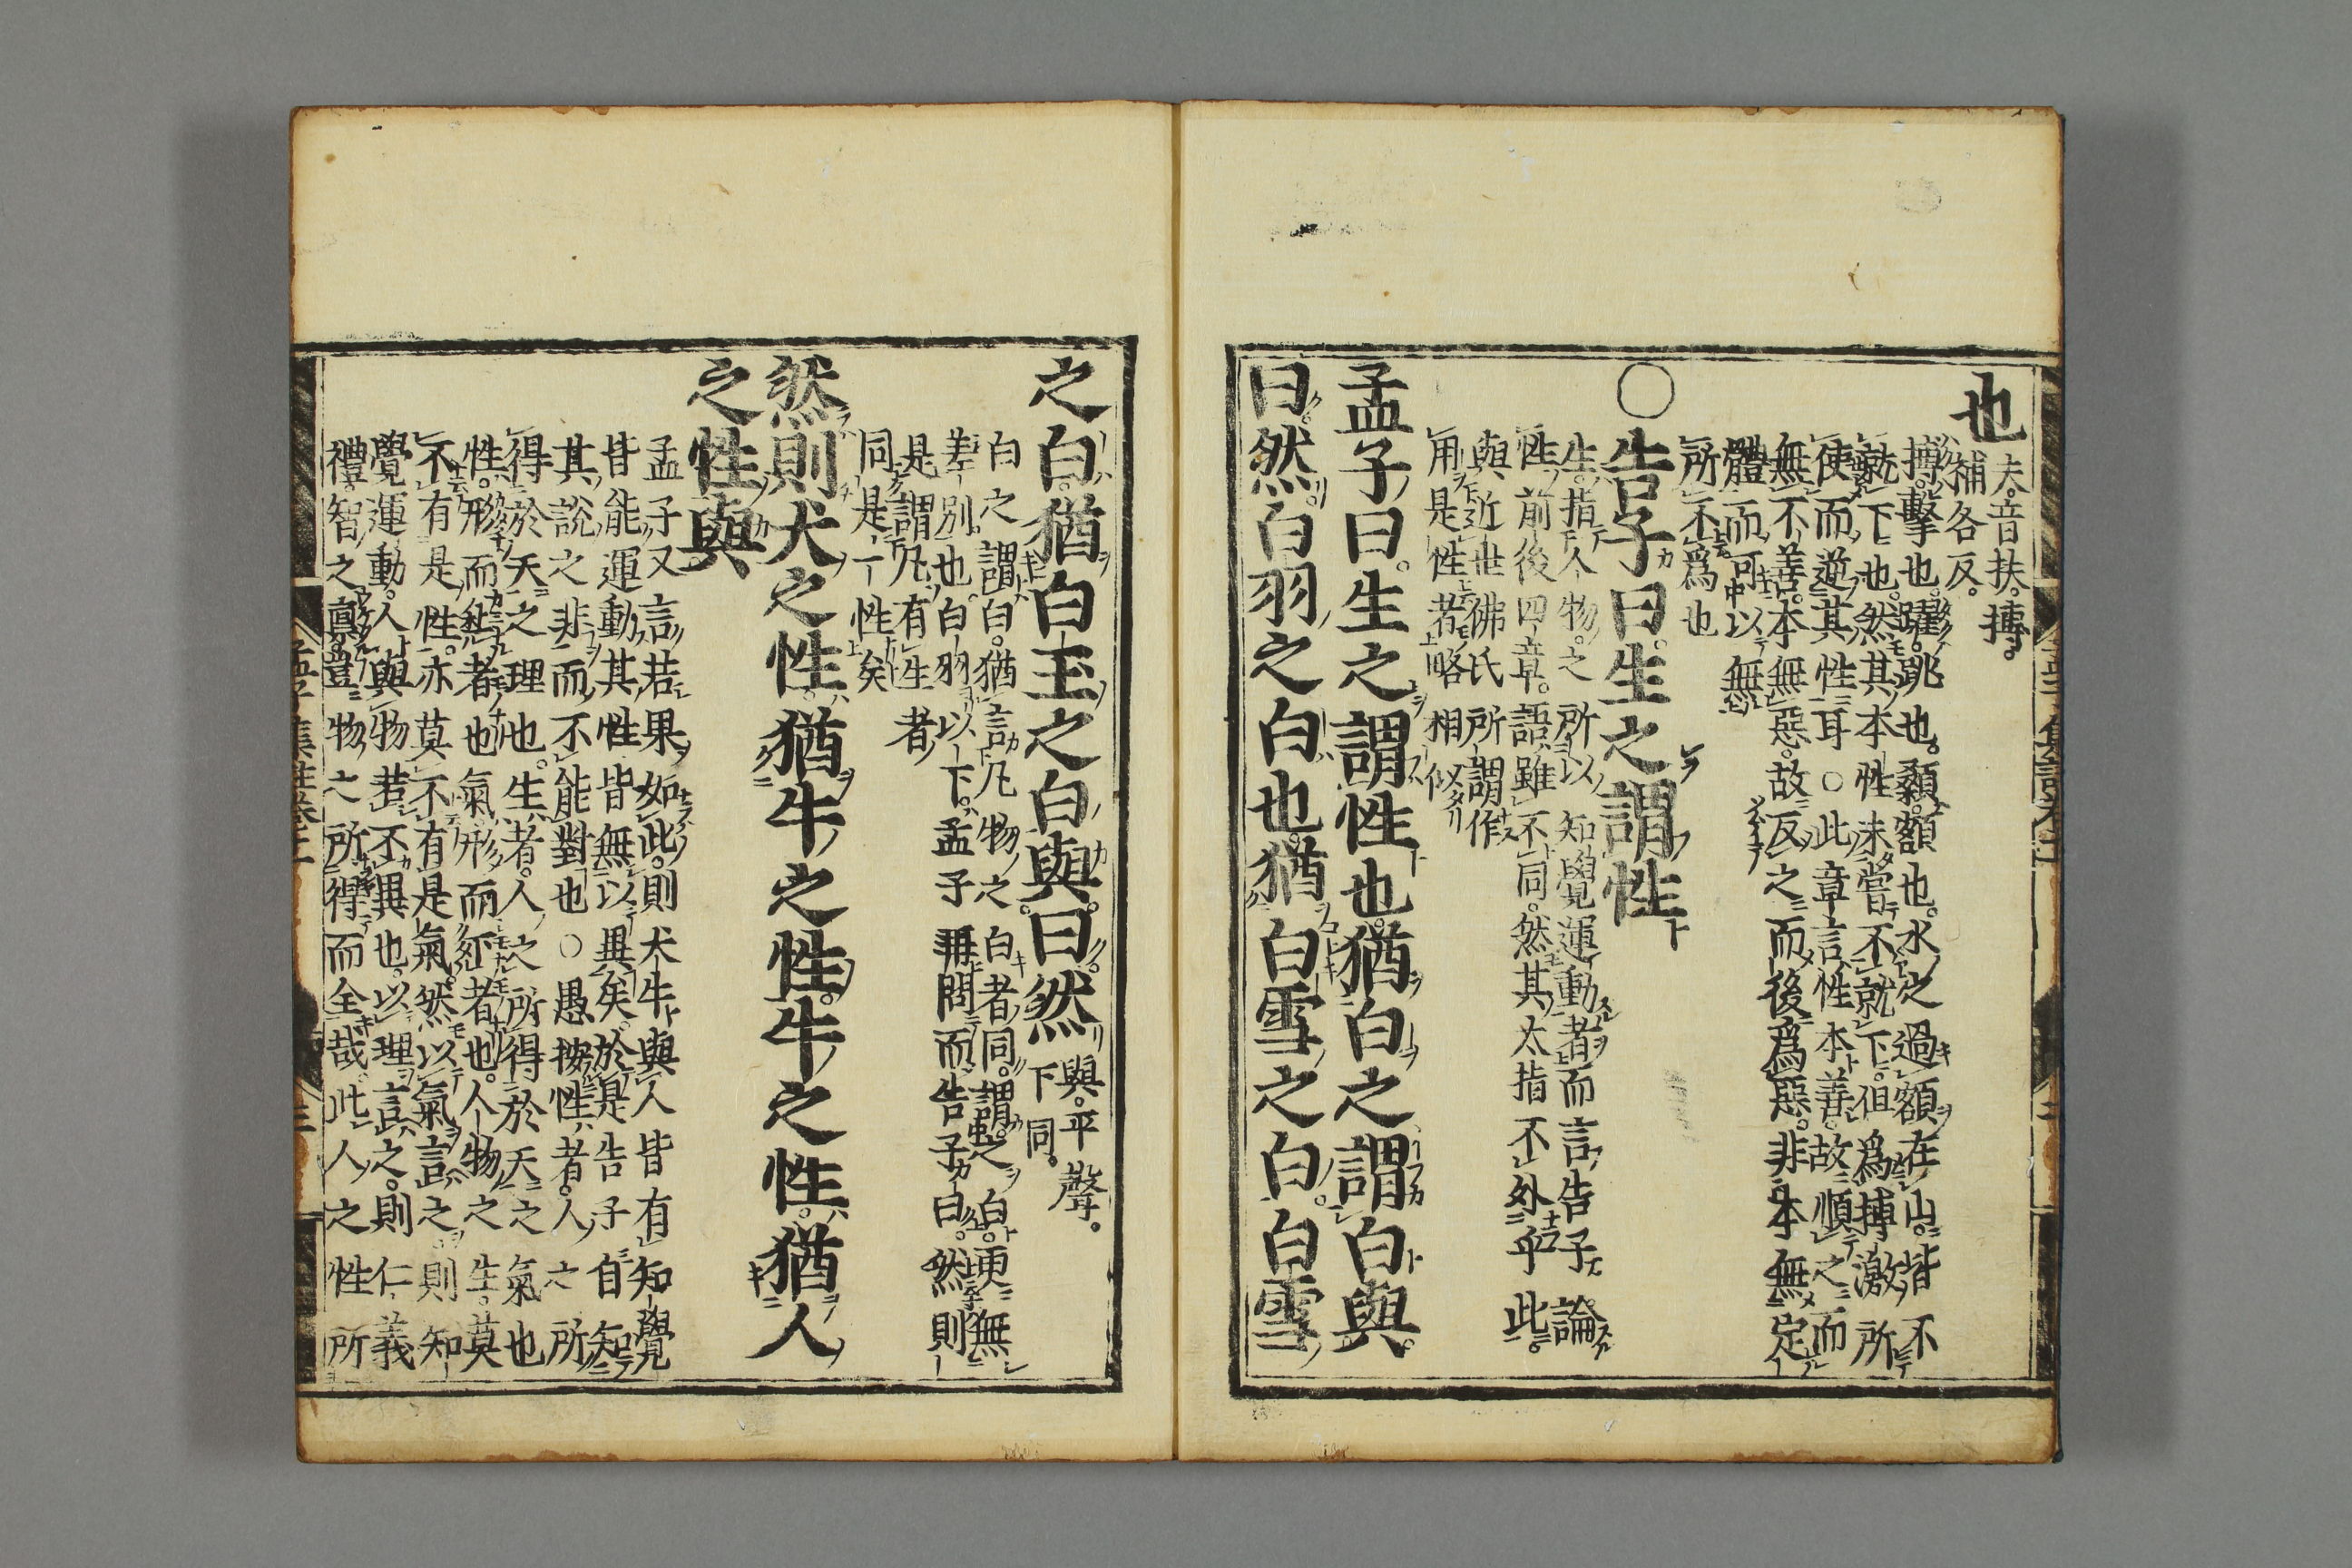 也
夫。音扶。搏。
補各反。
搏。擊也。躍。跳也。顙。額也。水之過額在山。皆不
就下也。然其本性未嘗不就下。但為搏激所
使而逆其性耳○此章言性本善。故順之而
無不善。本無惡。故反之而後為惡。非本無定
體而可以無
所不為也
○告子曰。生之謂性
生。指人物之所以知覺運動者而言。告子論
性。前後四章。語雖不同。然其大指不外乎此。
與近世佛氏所謂作
用是性者略相似
孟子曰。生之謂性也。猶白之謂白與。
曰。然。白羽之白也。猶白雪之白。白雪
之白。猶白玉之白與。曰然
與。平聲。
下同。
白之謂白。猶言凡物之白者同。謂之白。更無
差別也。白羽以下。孟子再問而告子曰。然則
是謂凡有生者
同是一性矣
然則犬之性。猶牛之性。牛之性。猶人
之性與
孟子又言若果如此。則犬牛與人皆有知覺
皆能運動其性皆無以異矣。於是告子自知
其說之非而不能對也○愚按性者。人之所
得於天之理也。生者。人之所得於天之氣也
性。形而上者也氣。形而下者也。人物之生。莫
不有是性。亦莫不有是氣。然以氣言之。則知
覺運動。人與物若不異也。以理言之。則仁義
禮智之稟。豈物之所得而全哉。此人之性所